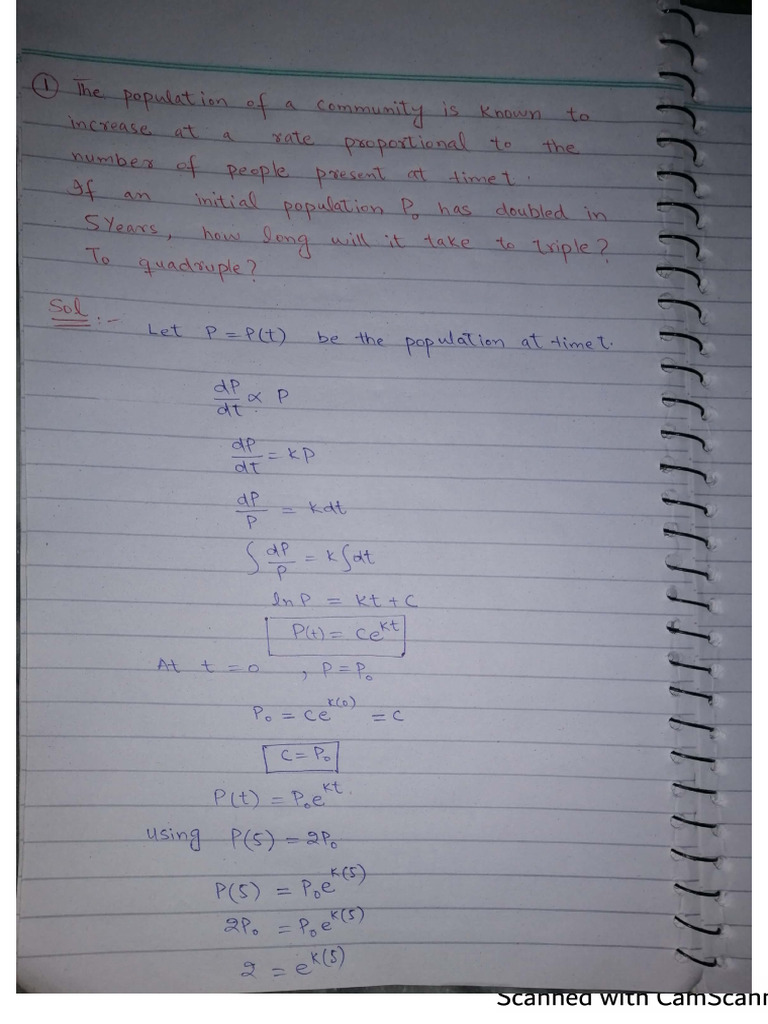 ① The population of a community is known to
increase at a rate proportional to the
number of people present at time t.
If an initial population P₀ has doubled in
5 Years, how long will it take to triple?
To quadruple?
Sol :-
Let P = P(t) be the population at time t.
dP/dt ∝ P
dP/dt = kP
dP/P = kdt
∫ dP/P = k∫dt
ln P = kt + c
P(t) = ce^kt
At t = 0 , P = P₀
P₀ = ce^k(0) = c
c = P₀
P(t) = P₀e^kt.
using P(5) = 2P₀
P(5) = P₀e^k(5)
2P₀ = P₀e^k(5)
2 = e^k(5)
Scanned with CamScann